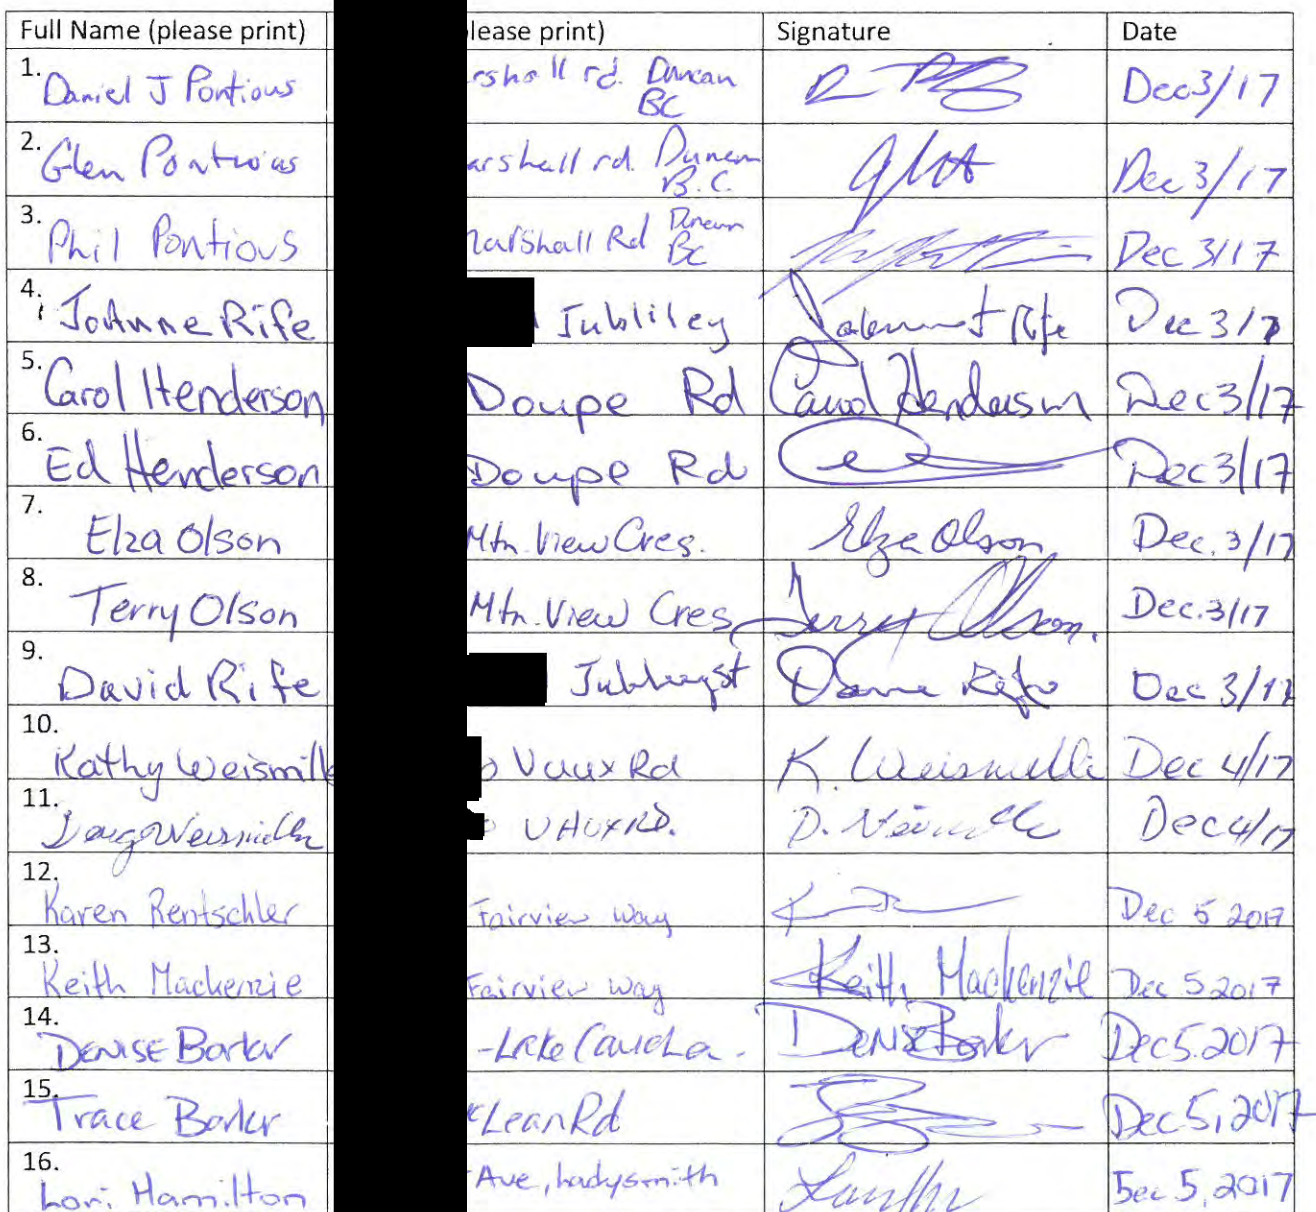 Full Name (please print) lease print) Signature Date
1. Daniel J Pontious rshall rd. Duncan BC Dec 3/17
2. Glen Pontious arshall rd. Duncan B.C. Dec 3/17
3. Phil Pontious arshall Rd Duncan BC Dec 3/17
4. JoAnne Rife Jubliley Rife Dec 3/17
5. Carol Henderson Doupe Rd Carol Henderson Dec 3/17
6. Ed Henderson Doupe Rd Dec 3/17
7. Elza Olson Mtn. View Cres. Elza Olson Dec. 3/17
8. Terry Olson Mtn. View Cres Terry Olson. Dec. 3/17
9. David Rife Rife Dec 3/17
10. Kathy Weismill Vaux Rd K. Weismiller Dec 4/17
11. Doug Weismiller VAUX RD. D. Dec 4/17
12. Karen Rentschler Fairview Way Dec 5 2017
13. Keith Mackenzie Fairview Way Keith Mackenzie Dec 5 2017
14. DENISE Barker -Lake Denise Barker Dec 5. 2017
15. Trace Barker cLean Rd Dec 5, 2017
16. Lori Hamilton Ave, Ladysmith Dec 5, 2017